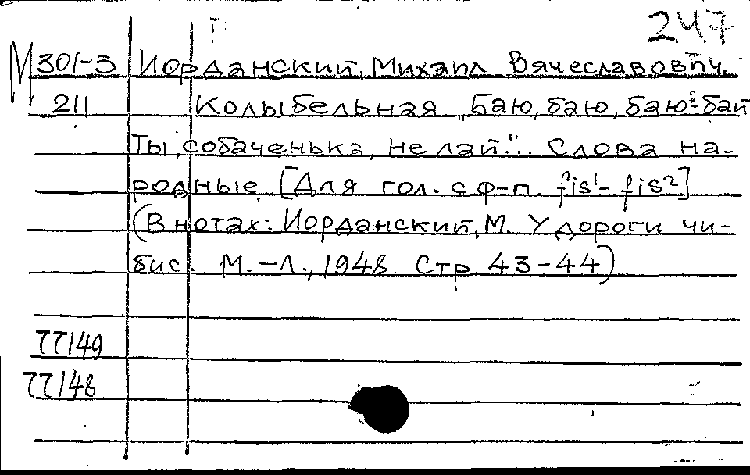 247
М 301-3 Иорданский, Михаил Вячеславович.
211 Колыбельная „Баю, баю, баю-бай
Ты, собаченька, не лай“. Слова на-
родные [Для гол. с ф-п. fis¹-fis²]
(В нотах: Иорданский, М. У дороги чи-
бис. М.-Л., 1948 Стр 43-44)
77149
77148